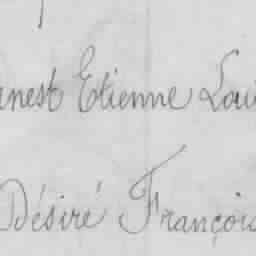 nest Etienne Loui
Désiré François